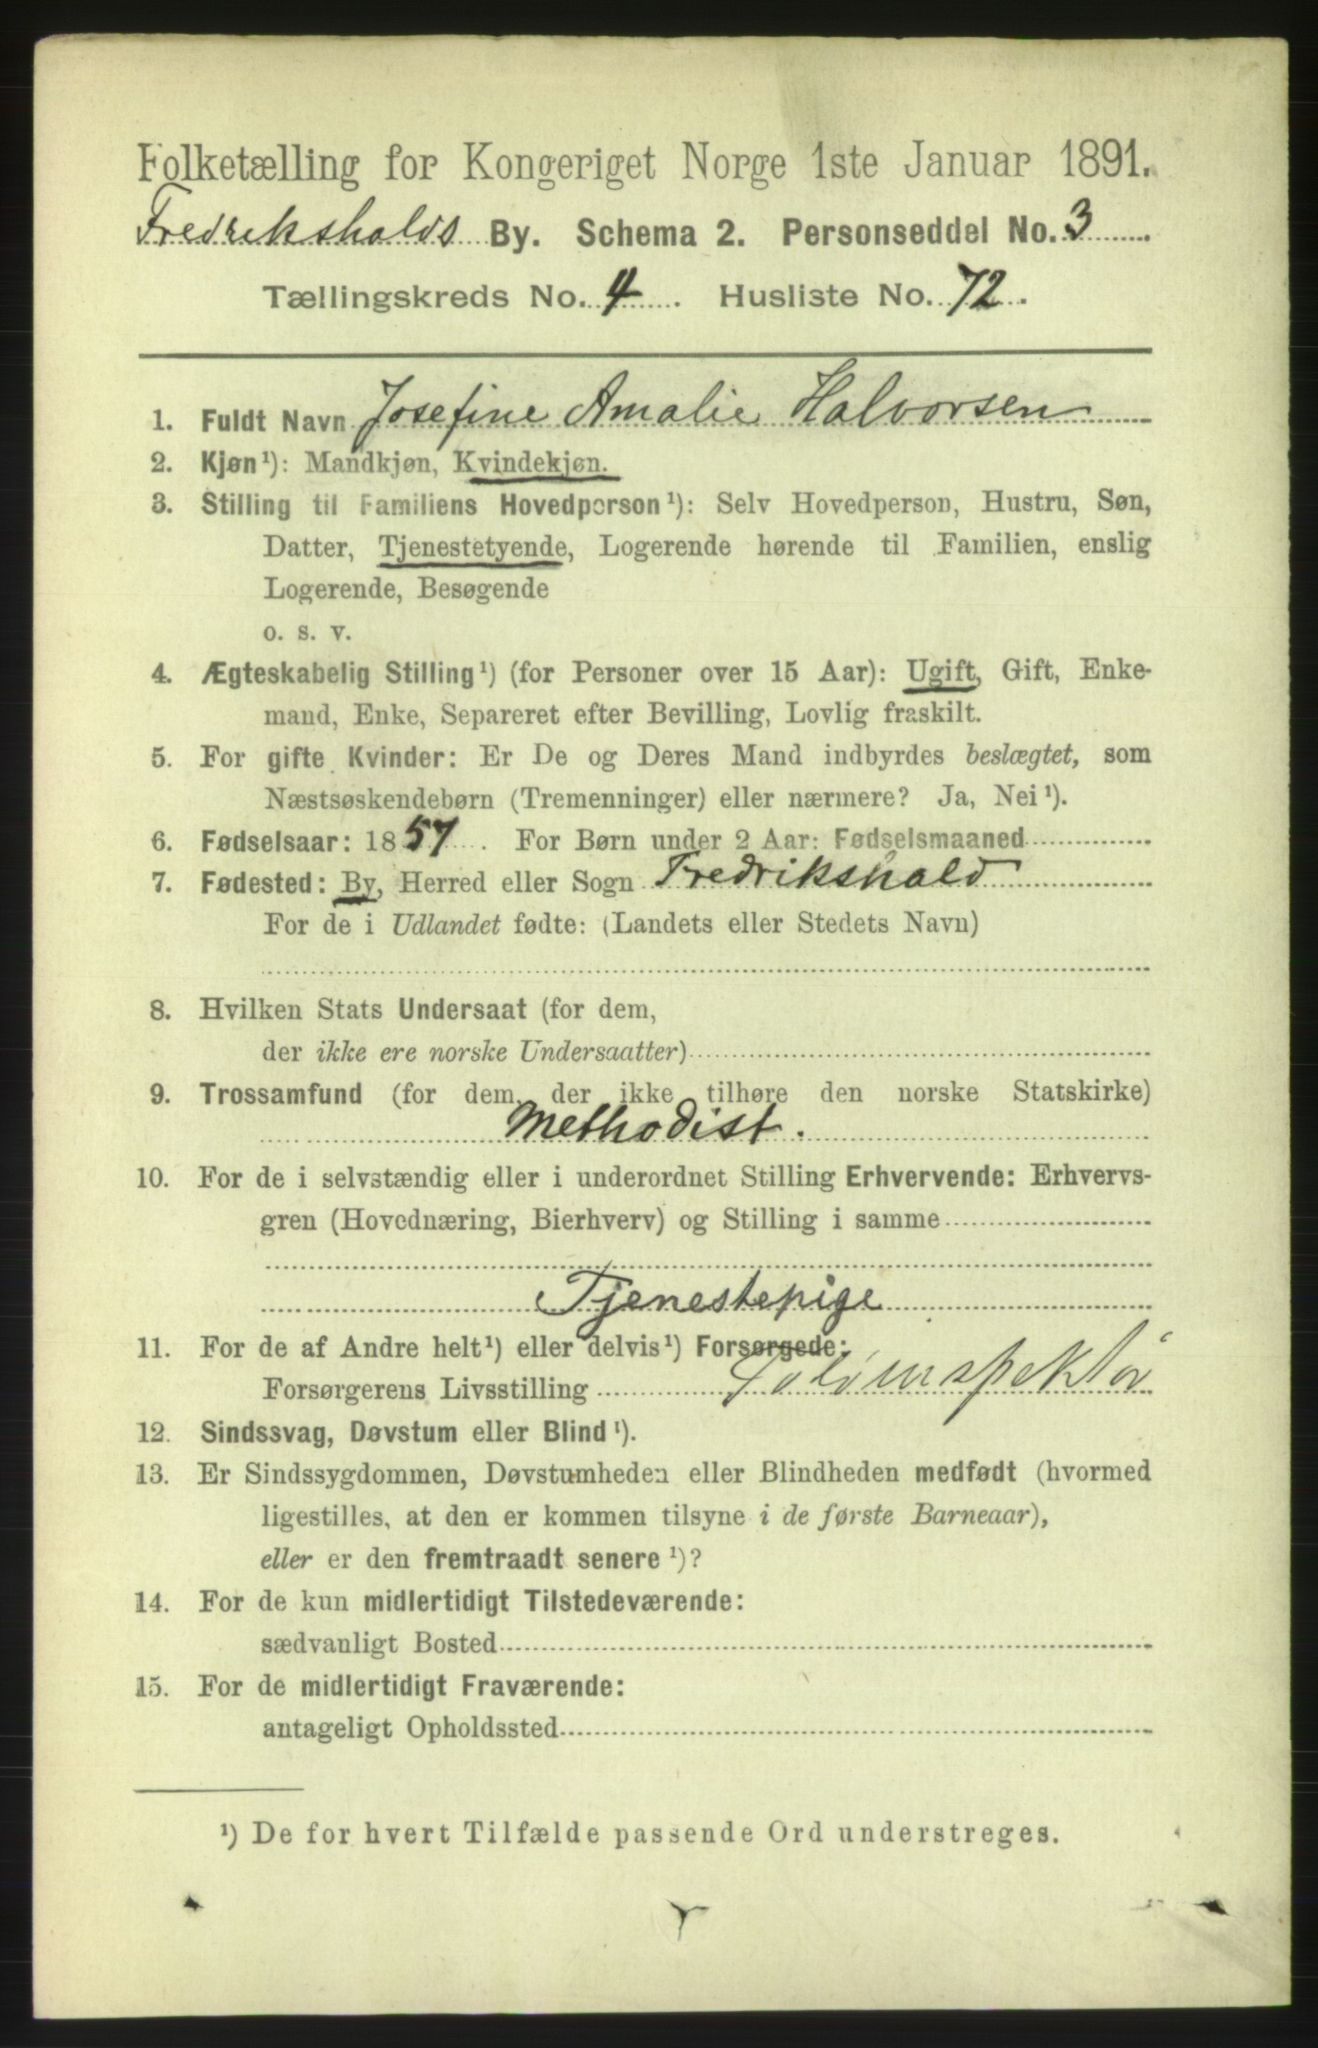 Folketælling for Kongeriget Norge 1ste Januar 1891.
Fredrikshalds By. Schema 2. Personseddel No. 3
Tællingskreds No. 4. Husliste No. 72.
1. Fuldt Navn Josefine Amalie Halvorsen
2. Kjøn¹): Mandkjøn, Kvindekjøn.
3. Stilling til Familiens Hovedperson¹): Selv Hovedperson, Hustru, Søn,
Datter, Tjenestetyende, Logerende hørende til Familien, enslig
Logerende, Besøgende
o. s. v.
4. Ægteskabelig Stilling¹) (for Personer over 15 Aar): Ugift, Gift, Enke-
mand, Enke, Separeret efter Bevilling, Lovlig fraskilt.
5. For gifte Kvinder: Er De og Deres Mand indbyrdes beslægtet, som
Næstsøskendebørn (Tremenninger) eller nærmere? Ja, Nei¹).
6. Fødselsaar: 1857. For Børn under 2 Aar: Fødselsmaaned
7. Fødested: By, Herred eller Sogn Fredrikshald
For de i Udlandet fødte: (Landets eller Stedets Navn)
8. Hvilken Stats Undersaat (for dem,
der ikke ere norske Undersaatter)
9. Trossamfund (for dem, der ikke tilhøre den norske Statskirke)
Methodist.
10. For de i selvstændig eller i underordnet Stilling Erhvervende: Erhvervs-
gren (Hovednæring, Bierhverv) og Stilling i samme
Tjenestepige
11. For de af Andre helt¹) eller delvis¹) Forsørgede:
Forsørgerens Livsstilling
12. Sindssvag, Døvstum eller Blind¹).
13. Er Sindssygdommen, Døvstumheden eller Blindheden medfødt (hvormed
ligestilles, at den er kommen tilsyne i de første Barneaar),
eller er den fremtraadt senere¹)?
14. For de kun midlertidigt Tilstedeværende:
sædvanligt Bosted
15. For de midlertidigt Fraværende:
antageligt Opholdssted
¹) De for hvert Tilfælde passende Ord understreges.